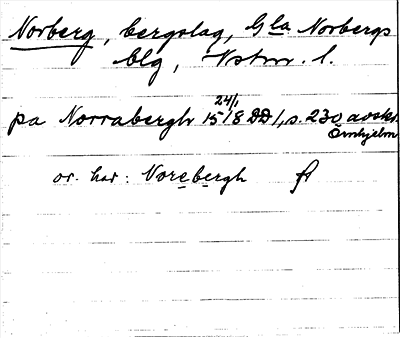 Norberg, bergslag, Gla Norbergs
blg, Vstm. l.
pa Norrabergh 24/1 1518 DD 1, s. 230 avskr. Örnhjelm
or. har: Norebergh fr